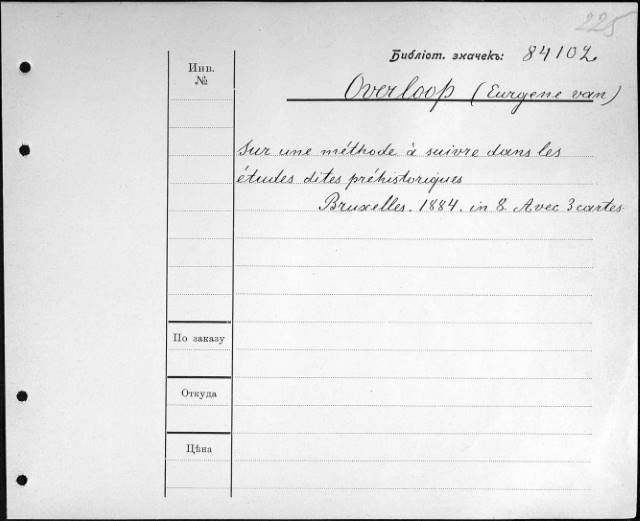 225
Библіот. значекъ: 84102
Инв.
№
Overloop (Eurgene van)
Sur une méthode à suivre dans les
études dites préhistoriques
Bruxelles. 1884. in 8. Avec 3 cartes
По заказу
Откуда
Цѣна